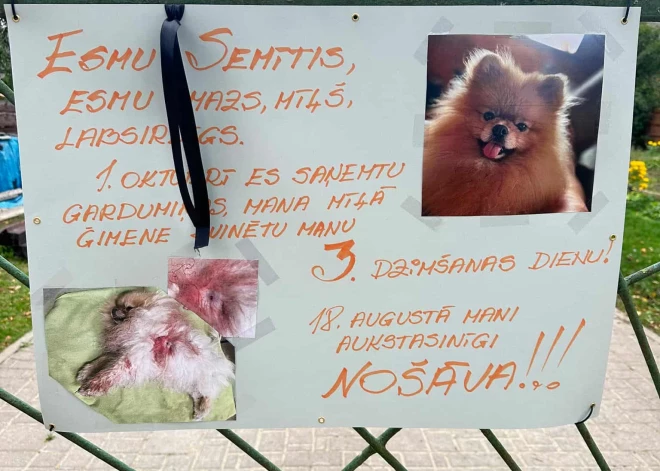 ESMU SEMĪTIS,
ESMU MAZS, MĪĻŠ,
LABSIRDĪGS.
1. OKTOBRĪ ES SAŅEMTU
GARDUMIŅUS, MANA MĪĻĀ
ĢIMENE SVINĒTU MANU
3. DZIMŠANAS DIENU!
18. AUGUSTĀ MANI
AUKSTASINĪGI
NOŠĀVA!!!